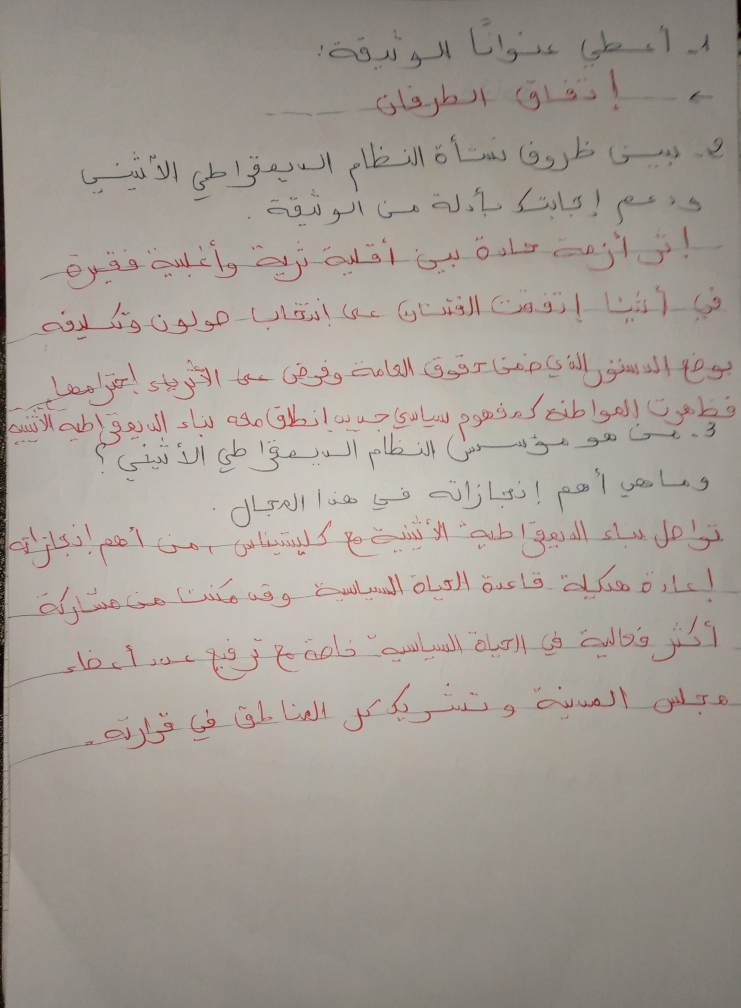 1- أعطي عنوانًا الوثيقة:
إتفاق الطرفان
2- بيني ظروف نشأة النظام الديمقراطي الأثيني
ودعم إجابتك بأدلة من الوثيقة.
إثر أزمة حادة بين أقلية ثرية وأغلبية فقيرة
في أثينا إتفقت الفئتان على إنتخاب صولون وتكليفه
بوضع الدستور الذي ضمن حقوق العامة وفرض على الأثرياء إحترامها
فظهرت المواطنة كمفهوم سياسي جديد إنطلق معه بناء الديمقراطية الأثينية
3- من هو مؤسس النظام الديمقراطي الأثيني؟
وماهي أهم إنجازاته في هذا المجال.
تواصل بناء الديمقراطية الأثينية مع كليستيناس، من أهم إنجازاته
إعادة هيكلة قاعدة الحياة السياسية وقد مكنت من مشاركة
أكثر فعالية في الحياة السياسية خاصة مع ترفيع عدد أعضاء
مجلس المدينة وتشريك كل المناطق في قراراته.